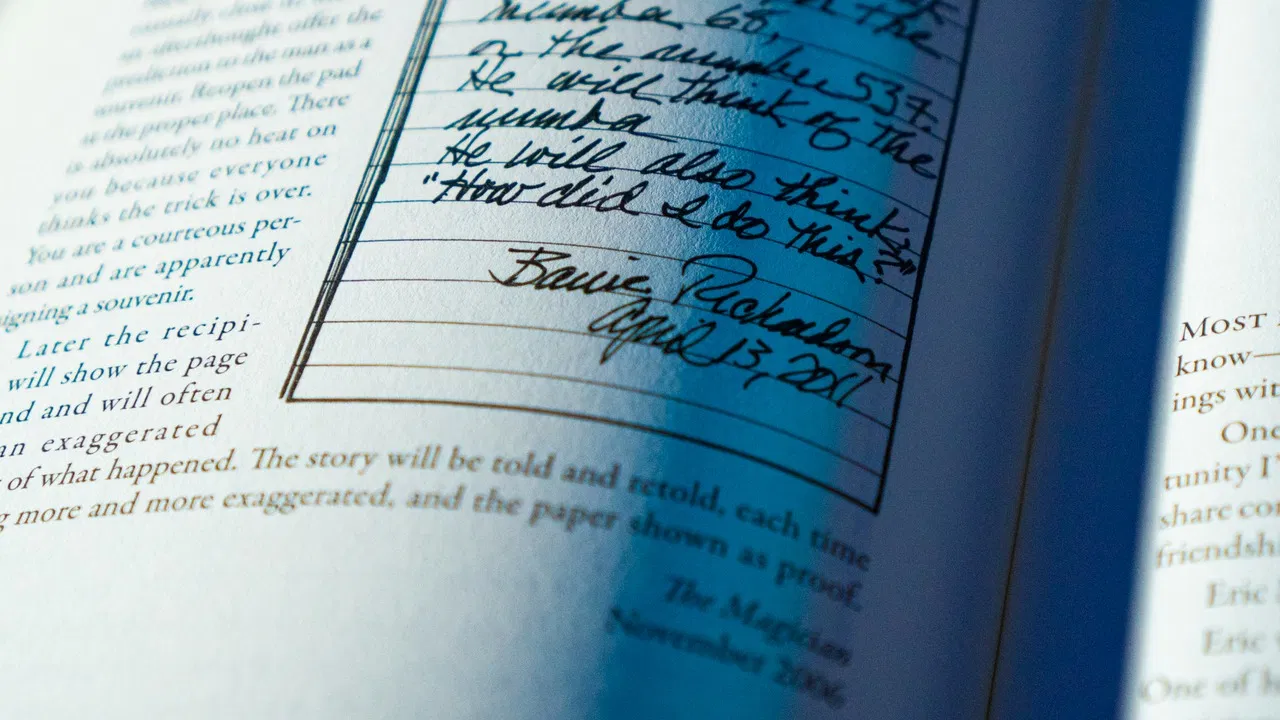 casually close it.
an afterthought offer the
prediction to the man as a
souvenir. Reopen the pad
at the proper place. There
is absolutely no heat on
you because everyone
thinks the trick is over.
You are a courteous per-
son and are apparently
signing a souvenir.
Later the recipi-
will show the page
nd and will often
an exaggerated
of what happened. The story will be told and retold, each time
g more and more exaggerated, and the paper shown as proof.
The Magician
November 2006
the
number 68,
or the number 537.
He will think of the
number
He will also think,
"How did I do this?"
Barrie Richardson
April 13, 2011
Most
know—
ings wit
One
tunity I'
share co
friendshi
Eric
Eric
One of h